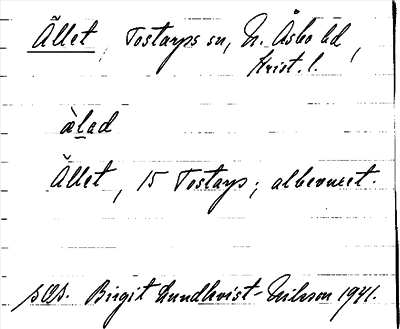 Ållet, Tostarps sn, N. Åsbo hd,
Krist. l.
àlad
Ållet, 15 Tostarp; albevuxet.
Birgit Lundkvist-Nilsson 1941.